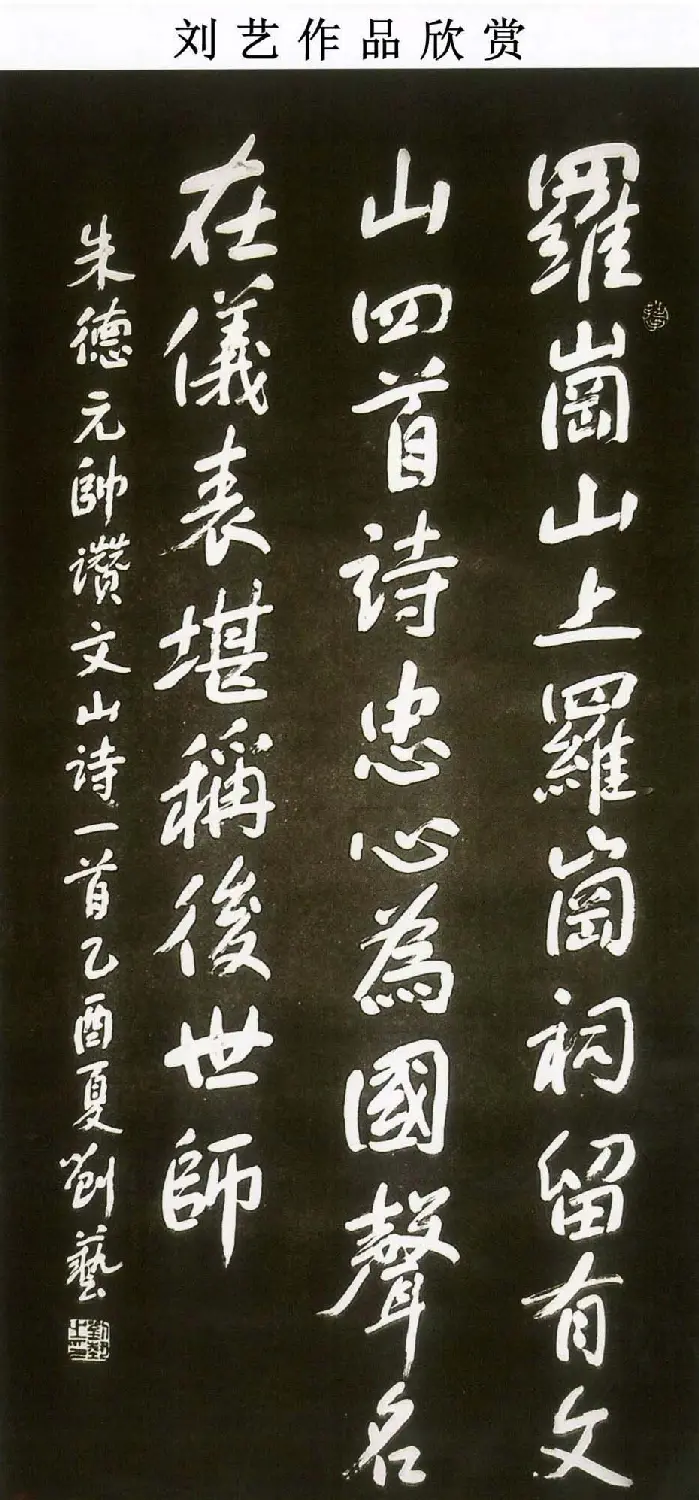 刘艺作品欣赏
羅崗山上羅崗祠留有文
山四首詩忠心為國聲名
在儀表堪稱後世師
朱德元帥讚文山诗一首乙酉夏劉藝